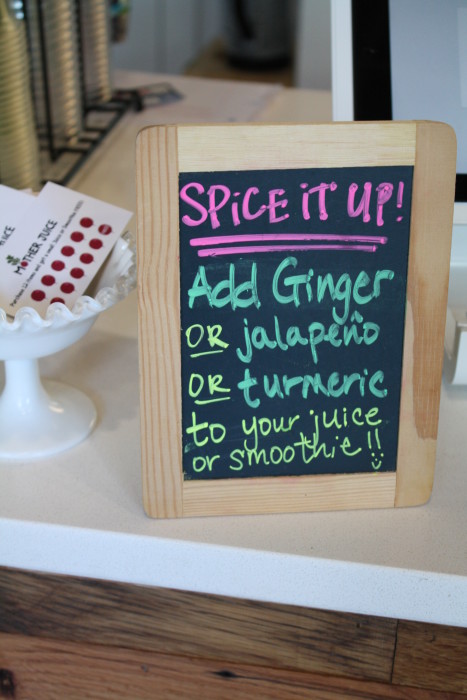 SPiCE iT UP!
Add Ginger
OR jalapeño
OR turmeric
to your juice
or smoothie!!
MOTHER JUICE